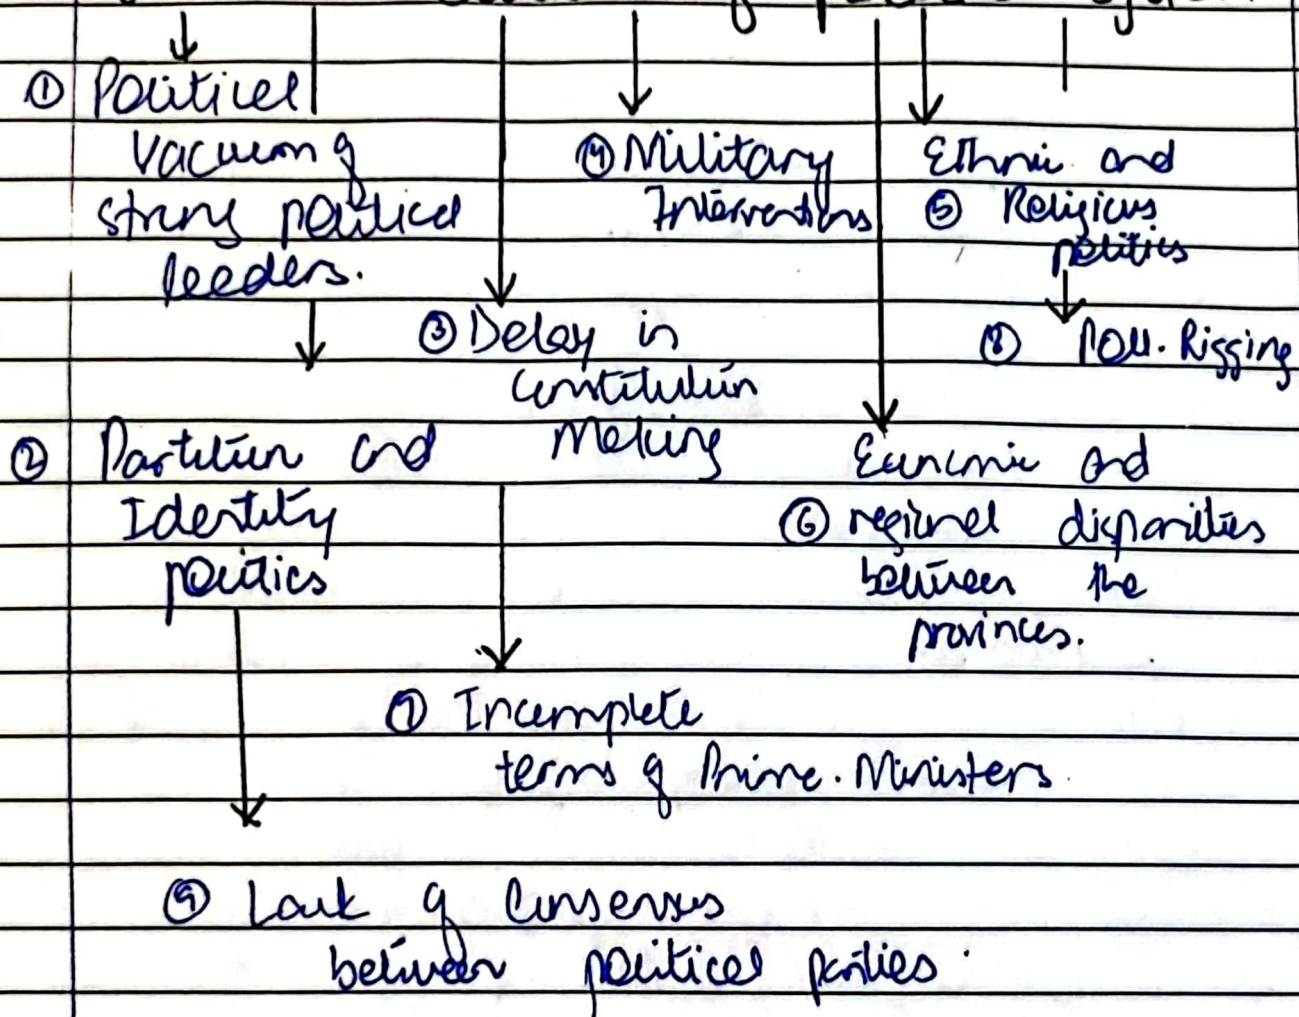 ① Political
Vacuum of
strong political
leeders.
④ Military
Interventions
Ethnic and
⑤ Religious
politics
③ Delay in
constitution
Making
⑧ Poll. Rigging
② Partition and
Identity
politics
Economic and
⑥ regional disparities
between the
provinces.
⑦ Incomplete
terms of Prime. Ministers
⑨ Lack of Consensus
between political parties.